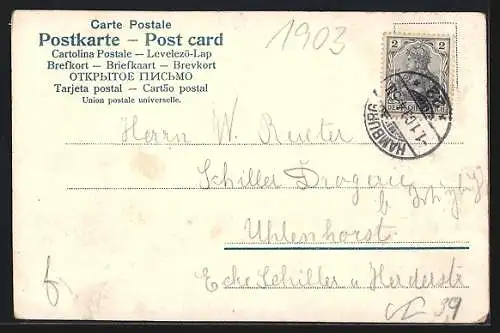 Carte Postale
Postkarte – Post card
Cartolina Postale – Levelező-Lap
Brefkort – Briefkaart – Brevkort
ОТКРЫТОЕ ПИСЬМО
Tarjeta postal – Cartão postal
Union postale universelle.
1903
2 2
HAMBURG
Herrn W. Reuter
Schiller Drogerie
Uhlenhorst
Ecke Schiller u Herderstr
39